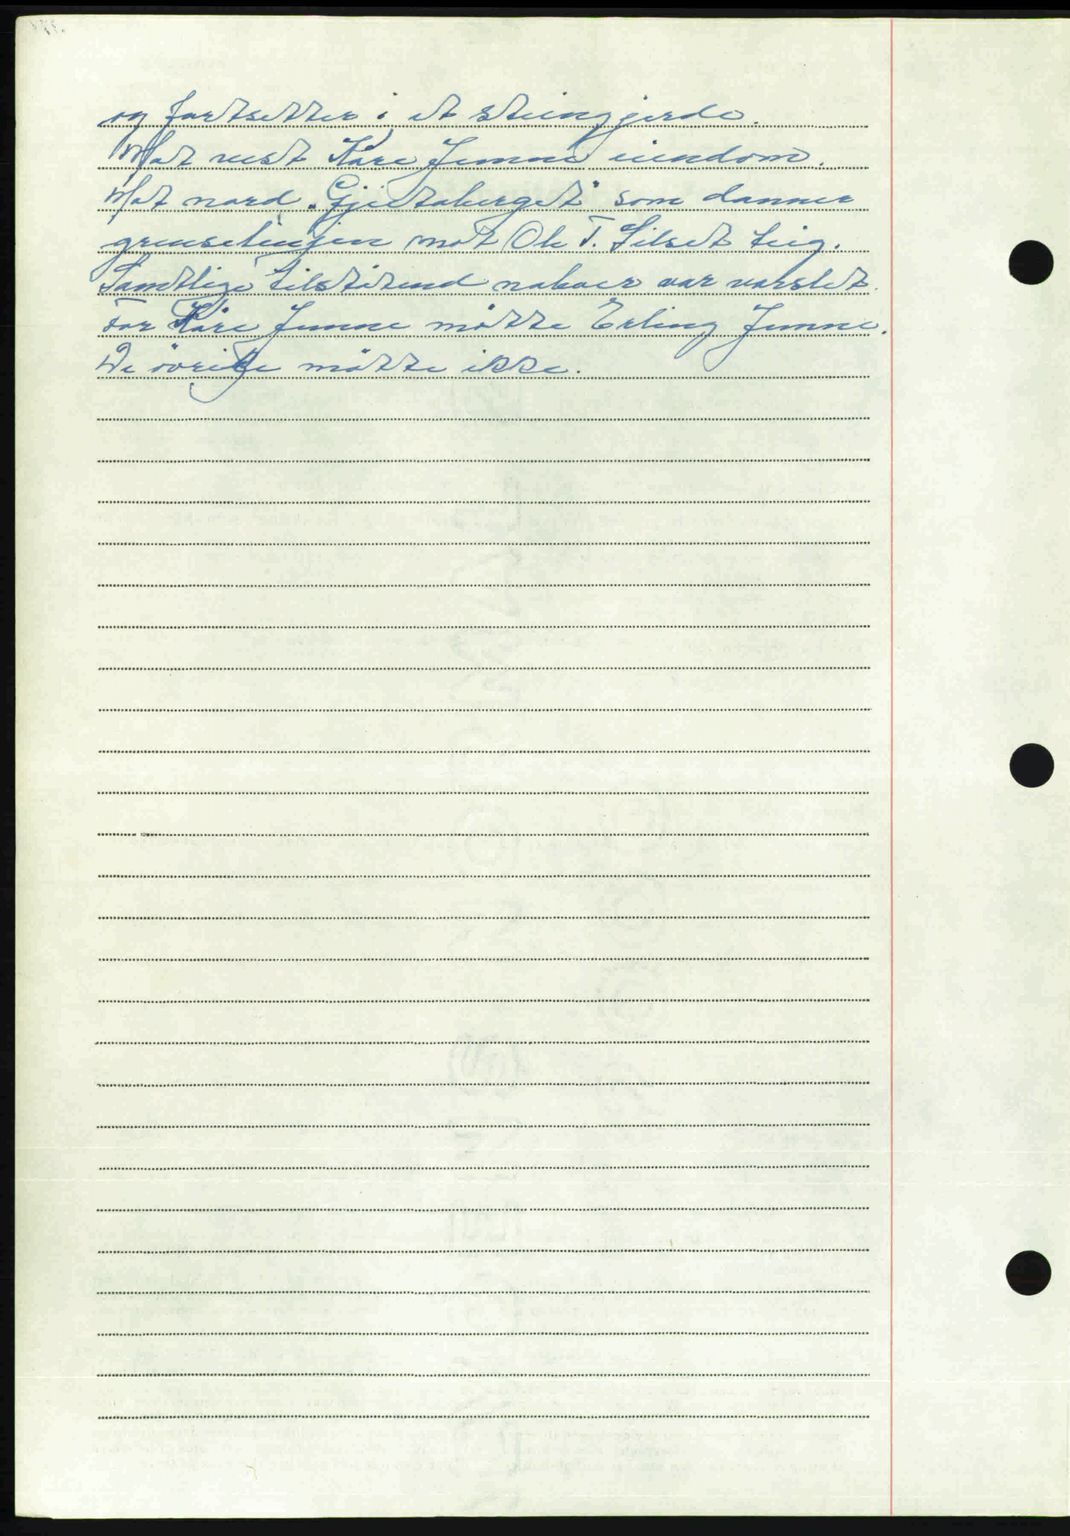 og fortsetter i et steingjerde.
Mot vest Kåre Jemne eiendom.
Mot nord „Gjeitaberget" som danner
grenselinjen mot Ole T. Silset teig.
Samtlige tilstötend naboer var varslet.
For Kåre Jemne mötte Erling Jemne.
De övrige mötte ikke.